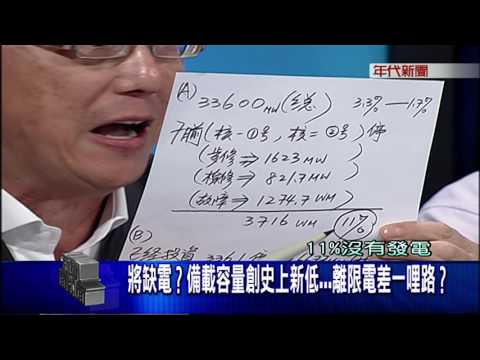 年代新聞
(A) 33600MW(總) 3.3% — 1.7%
目前(核一①号, 核二②号)停
(歩修⇒1623MW
(檢修⇒821.7MW)
(故障⇒1274.7WM)
3716WM 11%
(B)
已經投資
11%沒有發電
將缺電?備載容量創史上新低...離限電差一哩路?